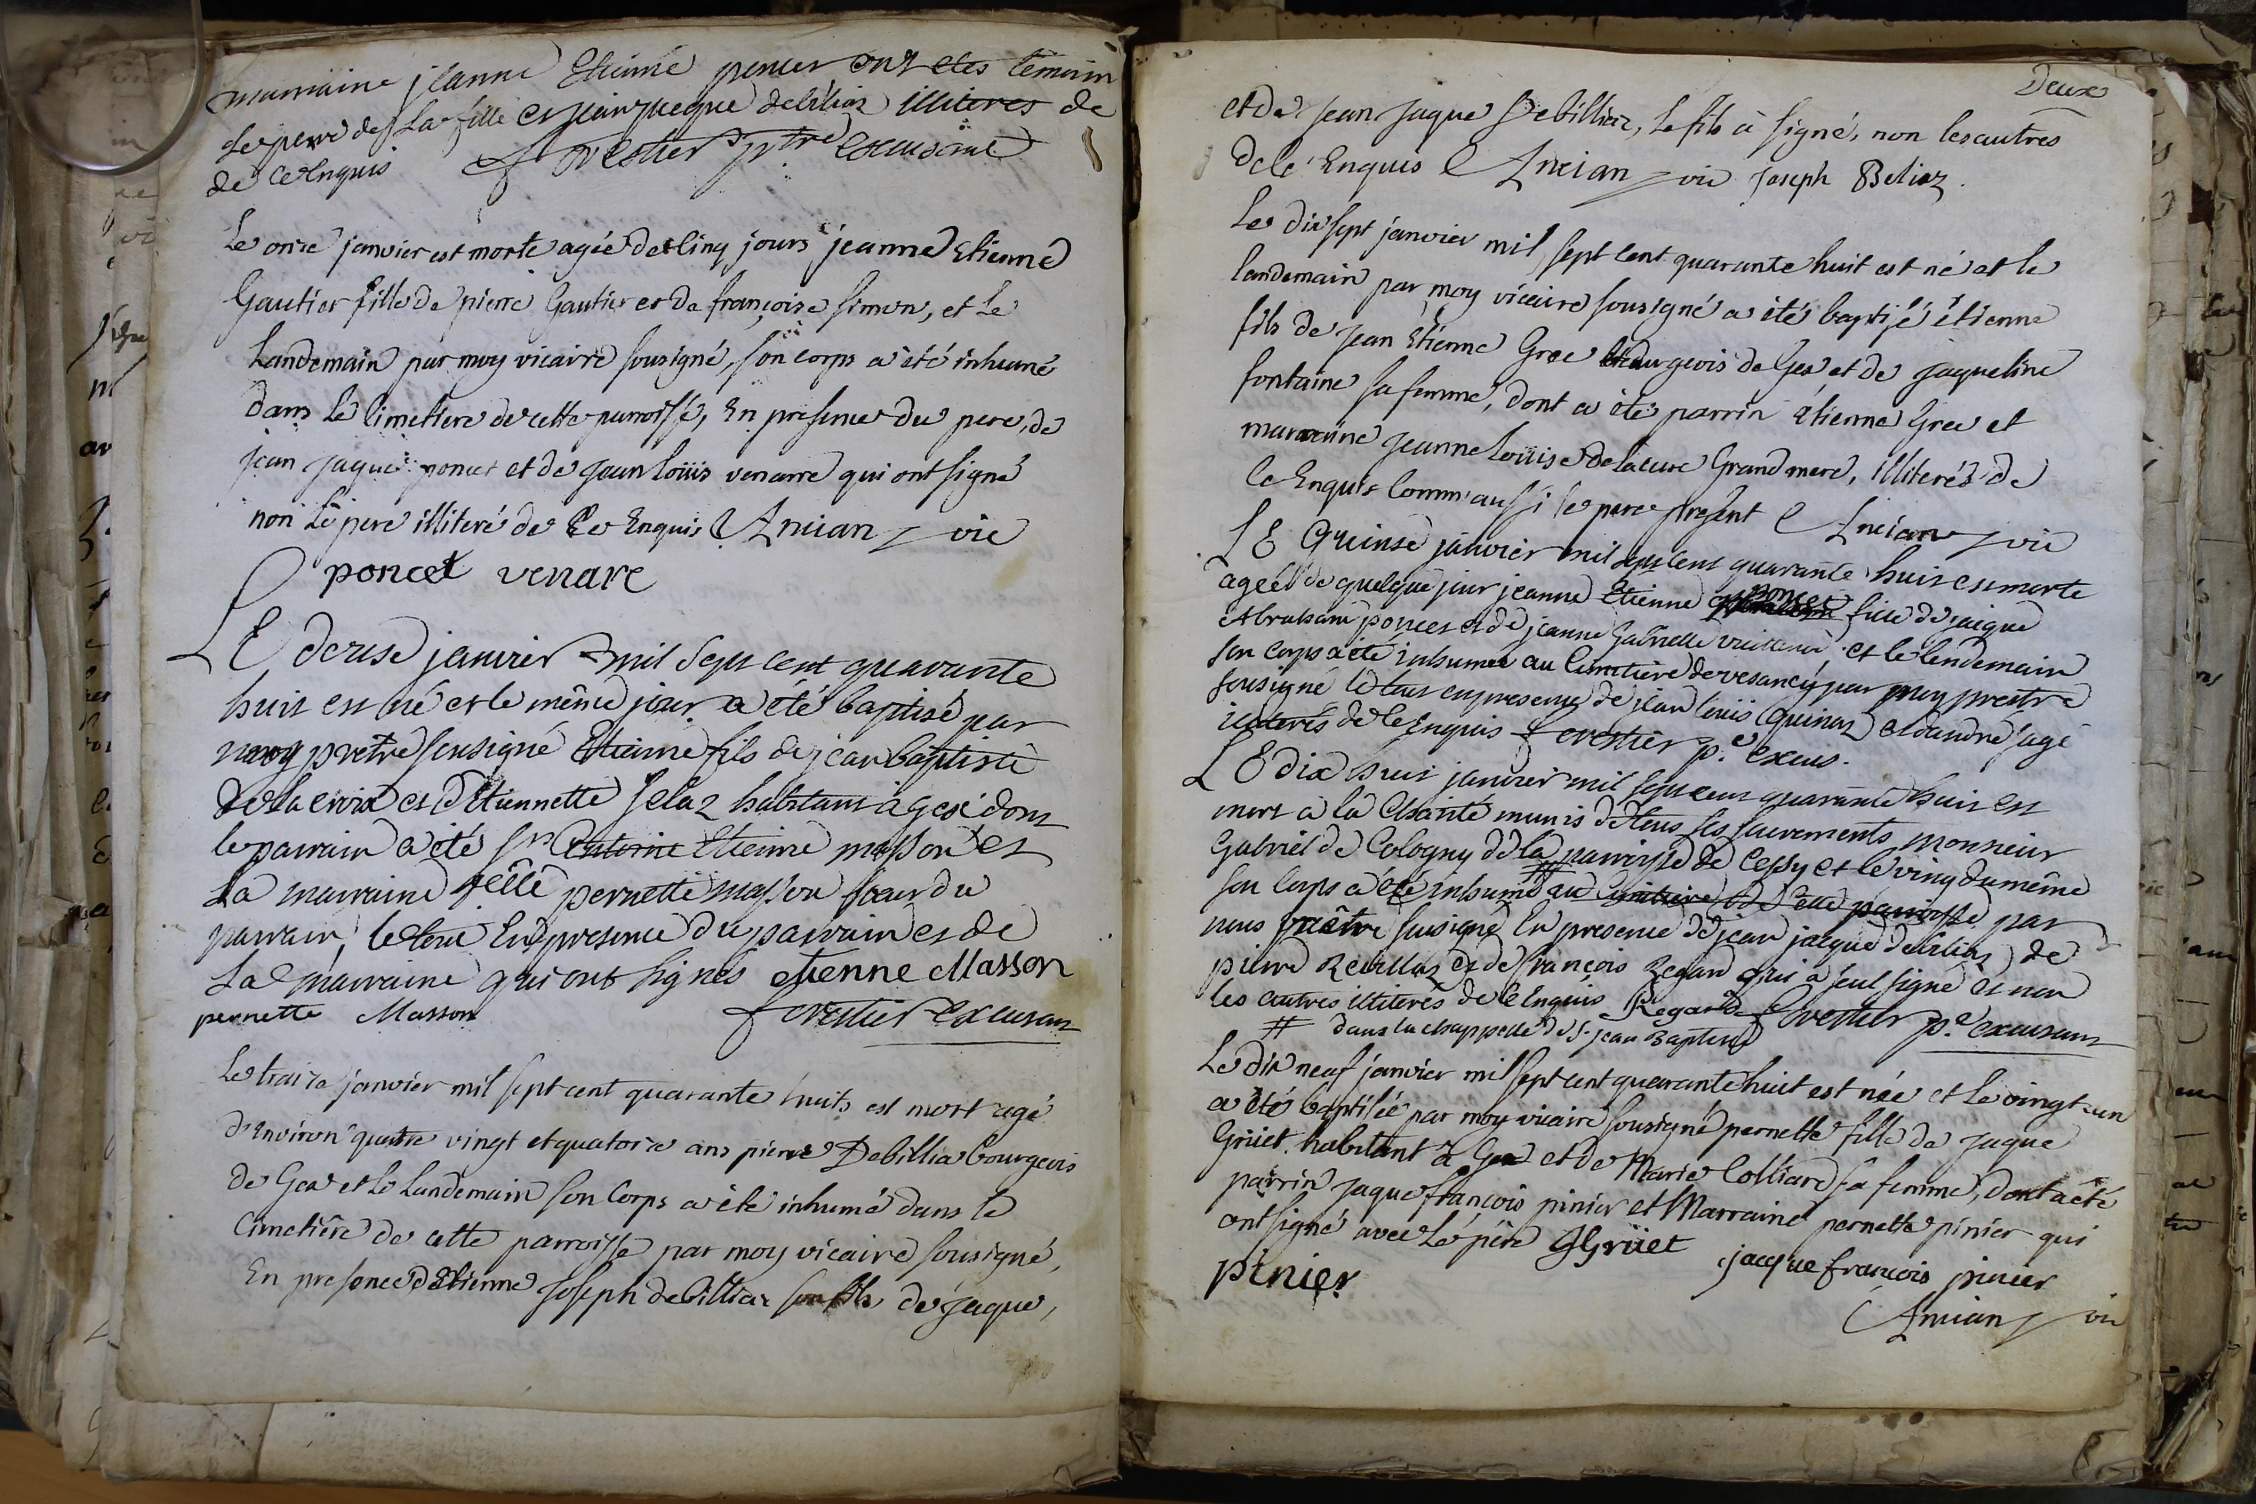 marraine jeanne Etienne poncet ont etes temoin
Le pere de La fille et jean jacque debiliaz illiteres de
de ce Enquis forestier ptre excusant
Le onze janvier est morte agée de Cinq jours jeanne Etienne
Gautier fille de pierre Gautier et de françoise Simon, et Le
Landemain par moy vicaire sousigné, son corps a été inhumé
dans Le Cimetiere de cette parroisse, En presence du pere, de
jean jaque poncet et de jean Loüis venarre qui ont signé
non Le pere illiteré de Ce Enquis Ancian vic
poncet venare
LE douse janvier mil sept cent quarante
huit est né et le même jour a été baptisé par
moy prêtre sousigné Etienne fils de jean baptiste
de la croix et d'Etiennette Jelaz habitant a gex dont
le parrain a été sr Etienne masson et
La marraine delle pernette masson soeur du
parrain, le tout En presence du parrain et de
La marraine qui ont signés etienne Masson
pernette Masson forestier excusant
Le traize janvier mil sept cent quarante huits est mort agé
d'Environ quatre vingt et quatorze ans pierre Debilliaz bourgeois
de Gex et Le Landemain son Corps a été inhumé dans le
Cimetière de cette parroisse par moy vicaire sousigné,
En presence d'Etienne joseph debilliaz son fils de jaque,
Deux
et de jean jaque Debilliaz, Le fils a signé, non les autres
de ce Enquis Ancian vic joseph Beliaz.
Le dix sept janvier mil sept cent quarante huit est né et le
landemain par moy vicaire sousigné a été baptisé étienne
fils de jean Etienne Grec bourgeois de Gex et de jaqueline
fontaine sa femme, dont a été parrin étienne Grec et
marraine jeanne Loüise delacure Grand mere, illiterés de
Ce Enquis Comm'aussi le pere present Ancian vic
LE Quinse janvier mil sept cent quarante huit est morte
agéé de quelque jour jeanne Etienne poncet fille de jaique
Abraham poncet et de jeanne Gabrielle et le lendemain
son corps a été inhumee au Cimitiere de vesancy par moy prêtre
sousigné le tout en presence de jean Louis Quinaz et d'andré sage
de ce Enquis forestier p.e excus.
LE dix huit janvier mil sept cent quarante huit est
mort à la Chante munis de tous ses sacrements monsieur
Gabriel de Cologny de la parroisse de Cessy et le ving du même
son Corps a été inhumé # au Cimitiere de cette parroisse par
nous prêtre susigné En presence de jean jacque debiliaz de
pierre Revillaz et de françois Regard qui a seul signé et non
les autres illiterés de ce Enquis Regard forestier p.e excusant
# dans la chappelle de s. jean Baptiste
Le dix neuf janvier mil sept cent quarante huit est née et Le vingt un
a été baptisée par moy vicaire sousigné pernette fille de jaque
Grüet habitant à Gex et de Marie Colliard sa femme, dont a été
parrin jaque françois pinier et Marraine pernette pinier qui
ont signé avec Le père JGrüet jacque francois pinier
pinier
Ancian vic